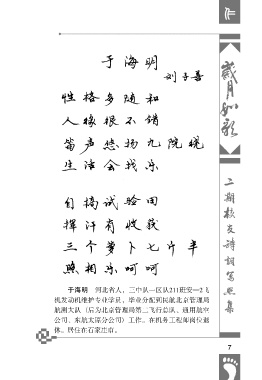 于海明
刘子善
性格多随和
人缘很不错
笛声悠扬九院绕
生活会找乐
自搞试验田
挥汗有收获
三个萝卜七斤半
照相乐呵呵
于海明 河北省人，三中队一区队211班安—2飞
机发动机维护专业学员，毕业分配到民航北京管理局
航测大队（后为北京管理局第二飞行总队、通用航空
公司、东航太原分公司）工作。在机务工程师岗位退
休。居住在石家庄市。
岁月如歌
二期校友诗词写照集
7